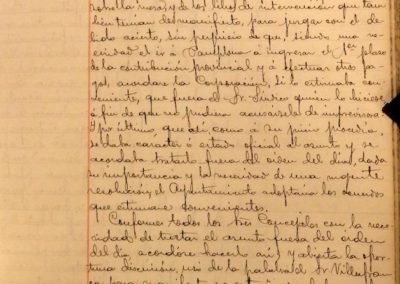 rrolla mora, y de los libros de intervencion que tam
bien tenian de manifiesto, para juzgar con el de
bido acierto, sin perjuicio de que, siendo una ne
cesidad el ir á Pamplona á ingresar el 1er plazo
de la contribución provincial y á efectuar otros pa
gos, acordara la Corporación, si lo estimaba con
veniente, que fuera el Sr. Sindico quien lo hiciese
á fin de que no pudiera acusársele de
Y por último, que así como á su juicio procedia,
se daba carácter ó estado oficial al asunto y se
acordaba tratarlo fuera del orden del dia, dada
su importancia y la necesidad de una urgente
resolución, el Ayuntamiento adoptaria los acuerdos
que estimase convenientes.
Conformes todos los tres Concejales con la nece
sidad de tratar el asunto fuera del orden
del dia, acordóse hacerlo así, y abierta la opor
tuna discusión, usó de la palabra el Sr. Villafran
ca para